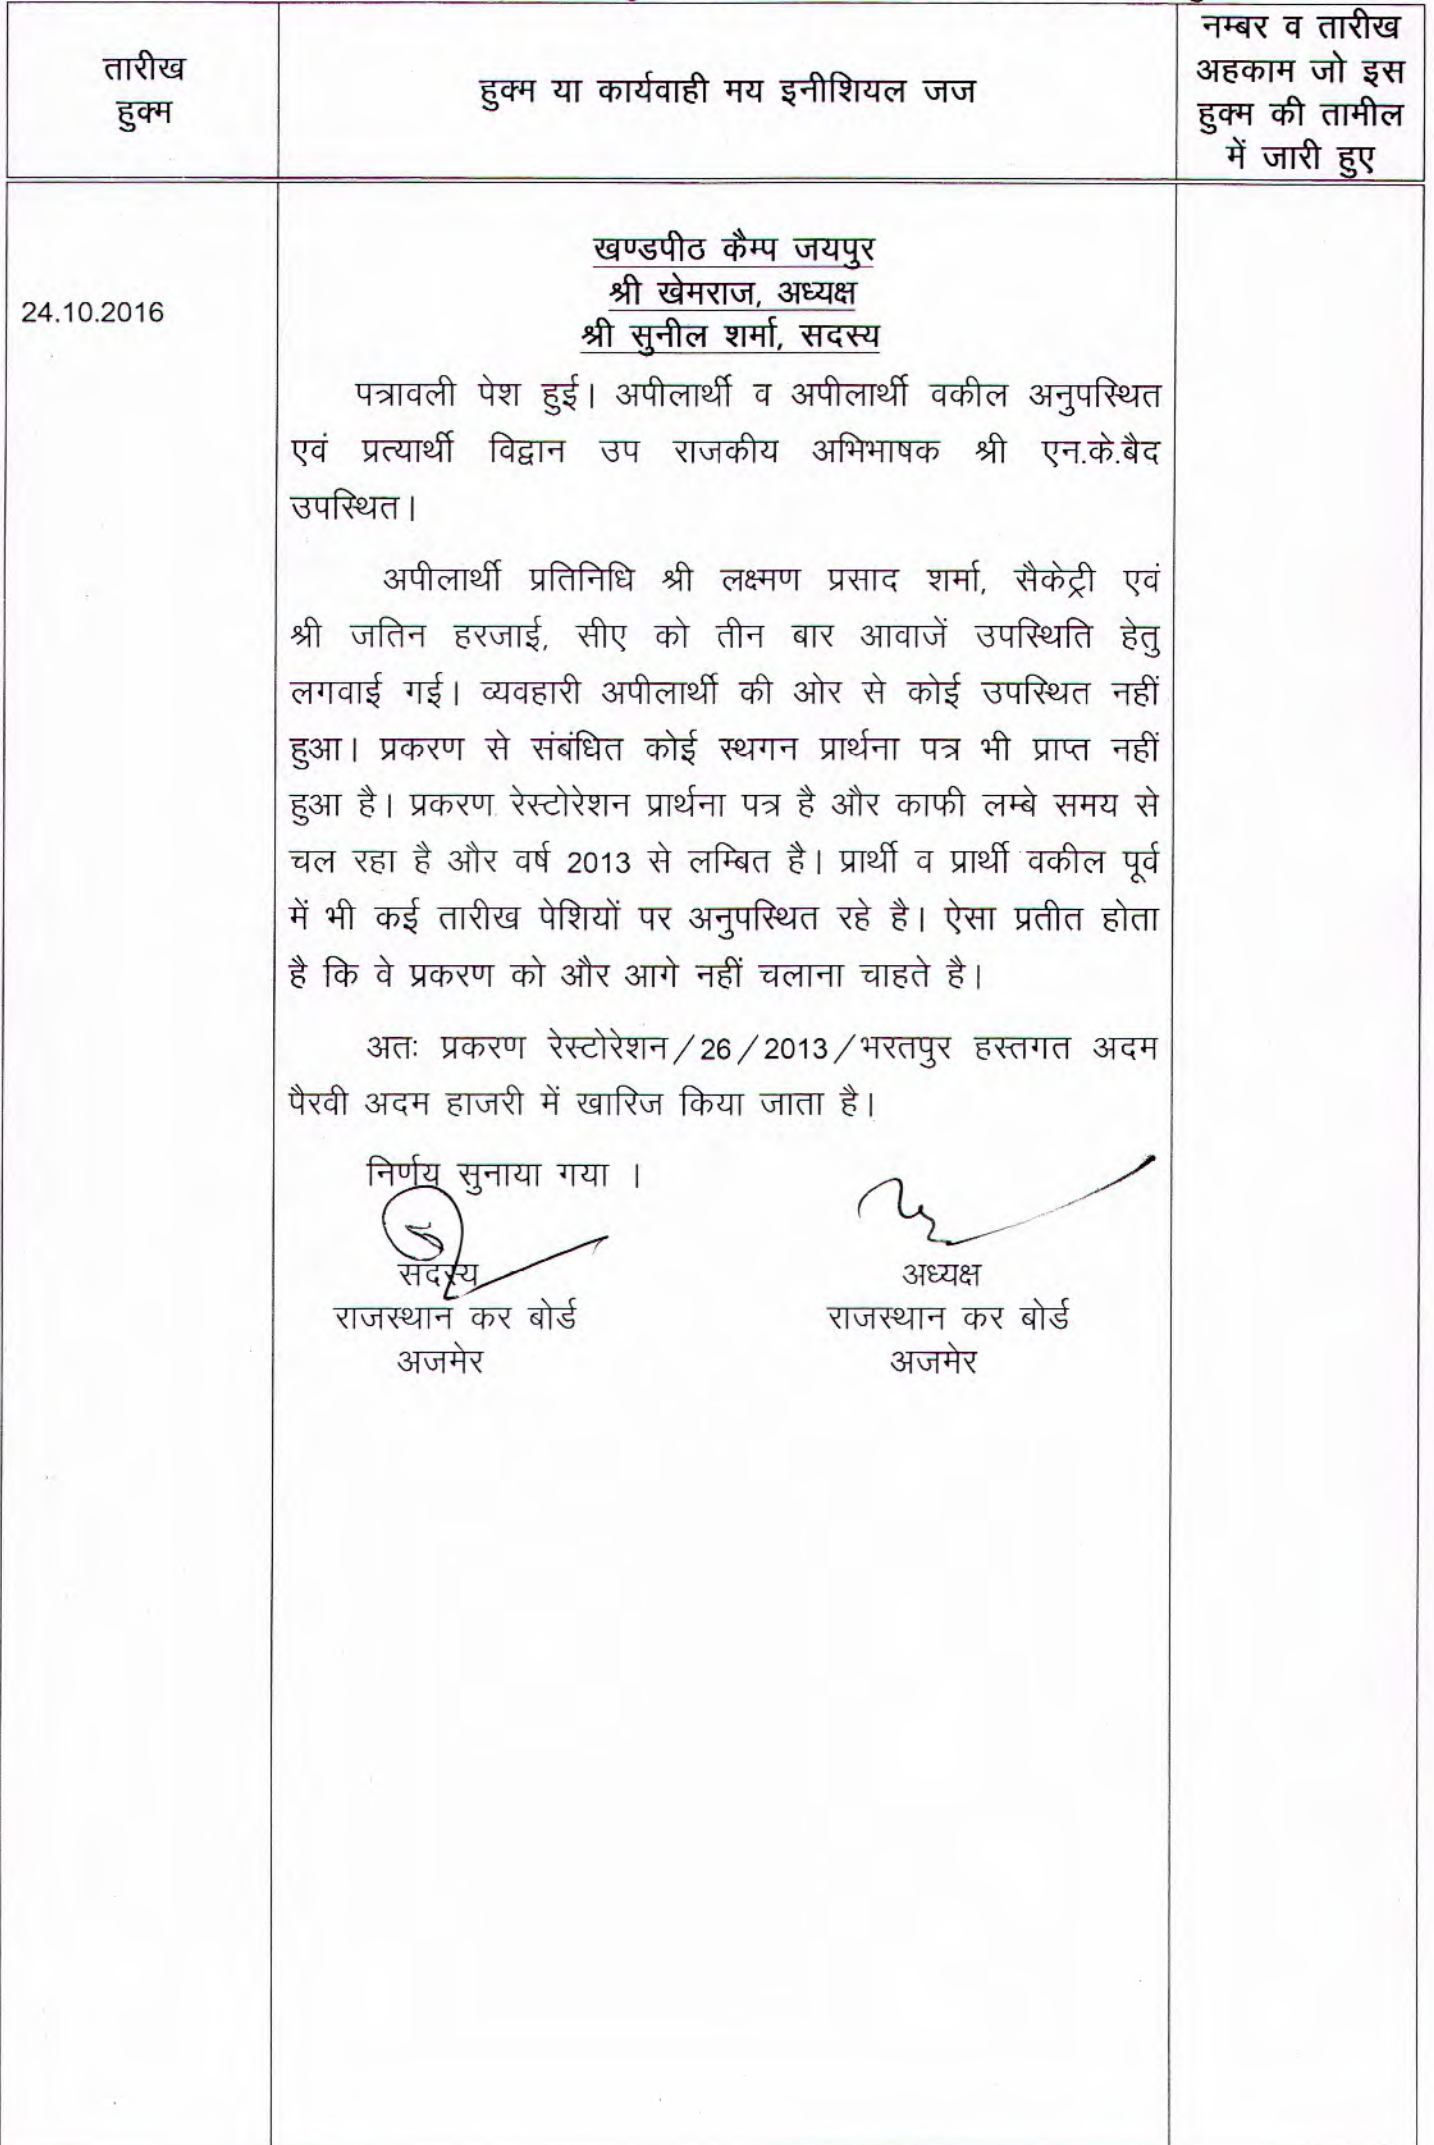 तारीख
हुक्म
हुक्म या कार्यवाही मय इनीशियल जज
नम्बर व तारीख
अहकाम जो इस
हुक्म की तामील
में जारी हुए
24.10.2016
खण्डपीठ कैम्प जयपुर
श्री खेमराज, अध्यक्ष
श्री सुनील शर्मा, सदस्य
पत्रावली पेश हुई। अपीलार्थी व अपीलार्थी वकील अनुपस्थित
एवं प्रत्यार्थी विद्वान उप राजकीय अभिभाषक श्री एन.के.बैद
उपस्थित।
अपीलार्थी प्रतिनिधि श्री लक्ष्मण प्रसाद शर्मा, सैकेट्री एवं
श्री जतिन हरजाई, सीए को तीन बार आवाजें उपस्थिति हेतु
लगवाई गई। व्यवहारी अपीलार्थी की ओर से कोई उपस्थित नहीं
हुआ। प्रकरण से संबंधित कोई स्थगन प्रार्थना पत्र भी प्राप्त नहीं
हुआ है। प्रकरण रेस्टोरेशन प्रार्थना पत्र है और काफी लम्बे समय से
चल रहा है और वर्ष 2013 से लम्बित है। प्रार्थी व प्रार्थी वकील पूर्व
में भी कई तारीख पेशियों पर अनुपस्थित रहे है। ऐसा प्रतीत होता
है कि वे प्रकरण को और आगे नहीं चलाना चाहते है।
अतः प्रकरण रेस्टोरेशन/26/2013/भरतपुर हस्तगत अदम
पैरवी अदम हाजरी में खारिज किया जाता है।
निर्णय सुनाया गया ।
सदस्य
अध्यक्ष
राजस्थान कर बोर्ड
राजस्थान कर बोर्ड
अजमेर
अजमेर